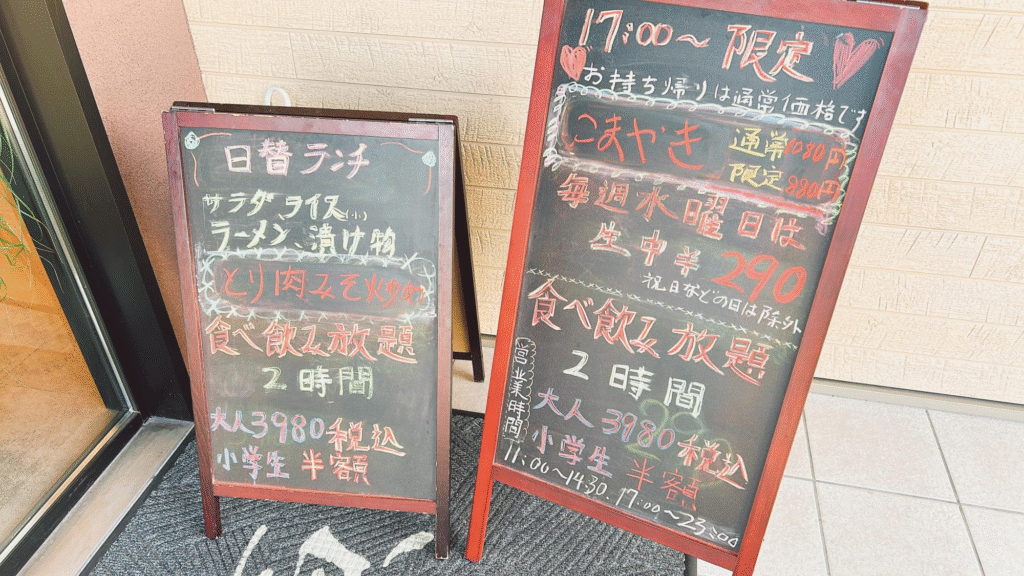 日替ランチ
サラダ、ライス(小)
ラーメン、漬け物
とり肉みそ炒め
食べ飲み放題
2時間
大人3980税込
小学生 半額
17:00〜限定
お持ち帰りは通常価格です
こまやき 通常1080円
限定 880円
毎週水曜日は
生中半290
祝日などの日は除外
食べ飲み放題
2時間
営業時間
大人3980税込
小学生 半額
11:00〜14:30、17:00〜23:00